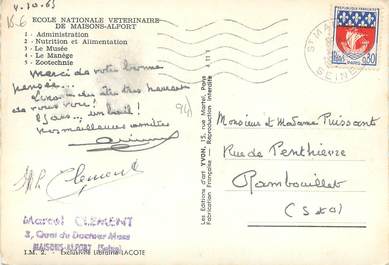 4.10.65
ECOLE NATIONALE VETERINAIRE
DE MAISONS-ALFORT
1 - Administration
2 - Nutrition et Alimentation
3 - Le Musée
4 - Le Manège
5 - Zootechnie
Merci de votre bonne
pensée...
de vous voir!
nos meilleures amitiés
M. Clement
Marcel CLEMENT
3, Quai du Docteur Mass
MAISONS-ALFORT (Seine)
I.M. 2. - Exclusivité Librairie LACOTE
Les Editions d'art YVON, 15, rue Martel, Paris
Fabrication Française - Reproduction Interdite
REPUBLIQUE FRANÇAISE
PARIS
0,30
POSTES
SEINE
Monsieur et Madame Puissant
Rue de Penthièvre
Rambouillet
(S&O)